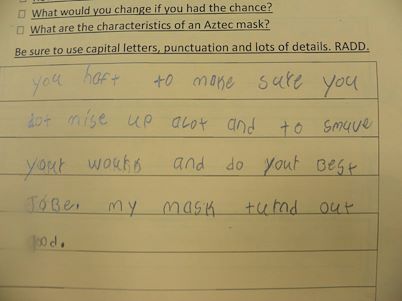 ☐ What would you change if you had the chance?
☐ What are the characteristics of an Aztec mask?
Be sure to use capital letters, punctuation and lots of details. RADD.
you haft to make sure you
dot mise up alot and to smuve
your works and do your Best
JoBe. my mask turnd out
good.